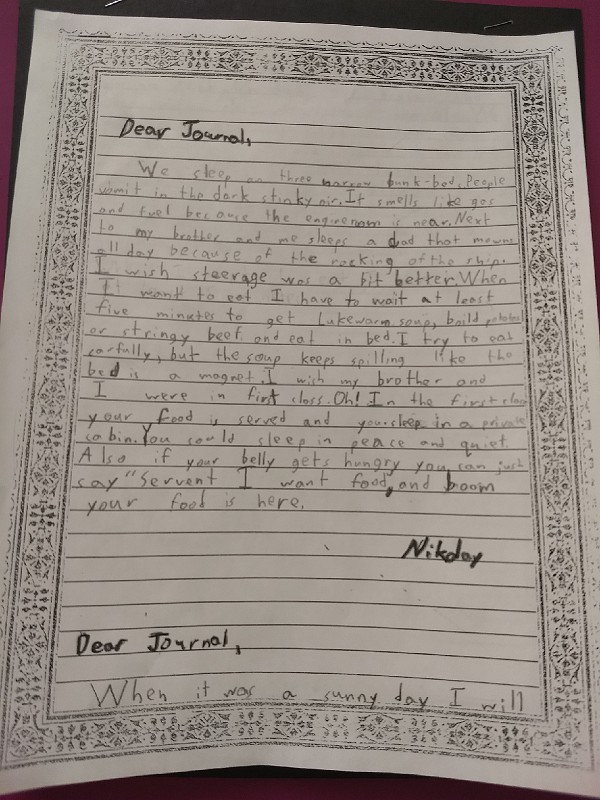 Dear Journal,
We sleep on three narrow bunk-bed. People
vomit in the dark stinky air. It smells like gas
and fuel because the engineroom is near. Next
to my brother and me sleeps a dad that mowns
all day because of the rocking of the ship.
I wish steerage was a bit better. When
I want to eat I have to wait at least
five minutes to get lukewarm soup, boild potatos
or stringy beef and eat in bed. I try to eat
carfully, but the soup keeps spilling like the
bed is a magnet. I wish my brother and
I were in first class. Oh! In the first class
your food is served and you sleep in a private
cabin. You could sleep in peace and quiet.
Also if your belly gets hungry you can just
say "Servent I want food, and boom
your food is here.
Nikolay
Dear Journal,
When it was a sunny day I will